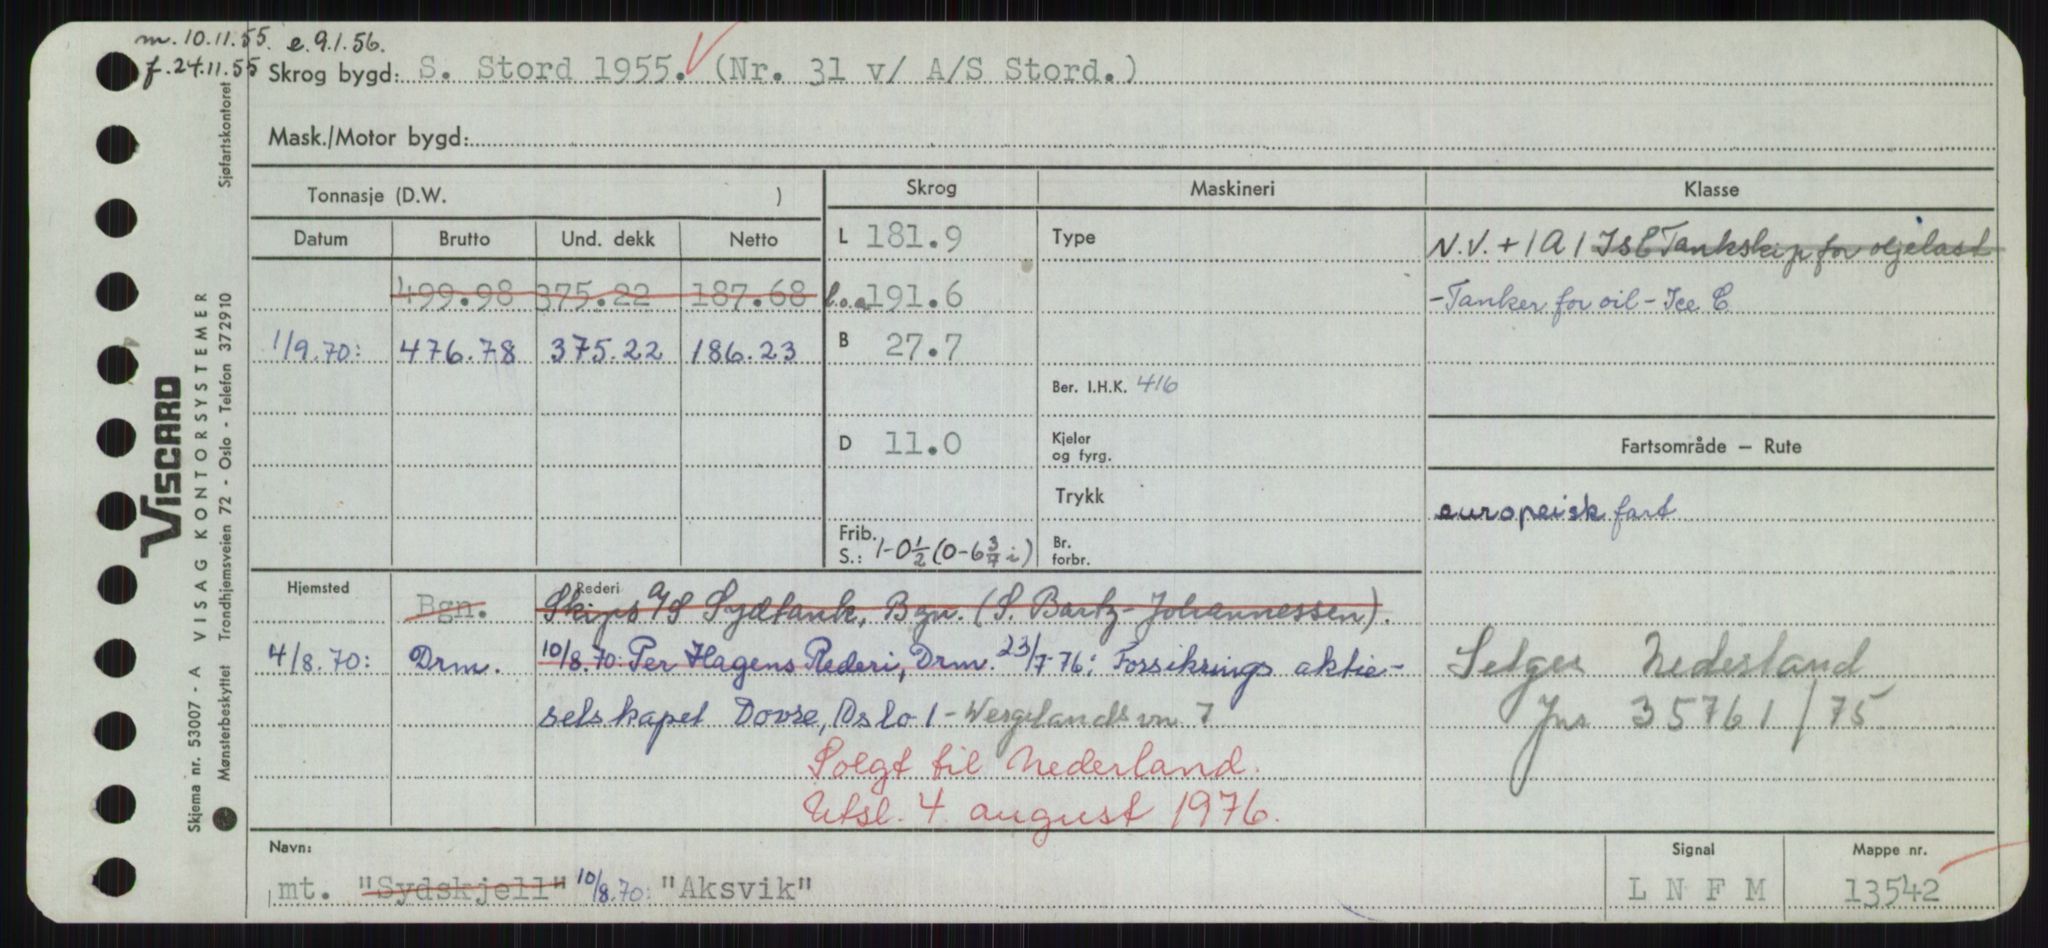 m. 10.11.55. e. 9.1.56.
f. 24.11.55 Skrog bygd: S. Stord 1955. (Nr. 31 v/ A/S Stord.)
Mask./Motor bygd:
Tonnasje (D.W. )
Skrog
Maskineri
Klasse
Datum Brutto Und. dekk Netto
L 181.9
Type
N.V. + 1A1 Is C Tankskip for oljelast
499.98 375.22 187.68
l.o.a 191.6
- Tanker for oil - Ice C
1/9.70: 476.78 375.22 186.23
B 27.7
Ber. I.H.K. 416
D 11.0
Kjeler
og fyrg.
Fartsområde — Rute
Trykk
europeisk fart
Frib.
S.: 1-0½ (0-6 3/7 i)
Br.
forbr.
Hjemsted
Rederi
Bgn. Skips A/S Sydtank, Bgn. (S. Bartz-Johannessen).
4/8.70: Drm. 10/8.70: Per Hagens Rederi, Drm. 23/7-76: Forsikrings aktie-
selskapet Dovre, Oslo 1 - Wergelandsvn 7
Selges Nederland
Jnr 35761/75
Solgt til Nederland.
Utsl. 4. august 1976.
Navn:
mt. "Sydskjell" 10/8.70: "Aksvik"
Signal
L N F M
Mappe nr.
13542
VISCARD
VISAG KONTORSYSTEMER
Skjema nr. 53007 - A
Mønsterbeskyttet Trondhjemsveien 72 - Oslo - Telefon 372910
Sjøfartskontoret